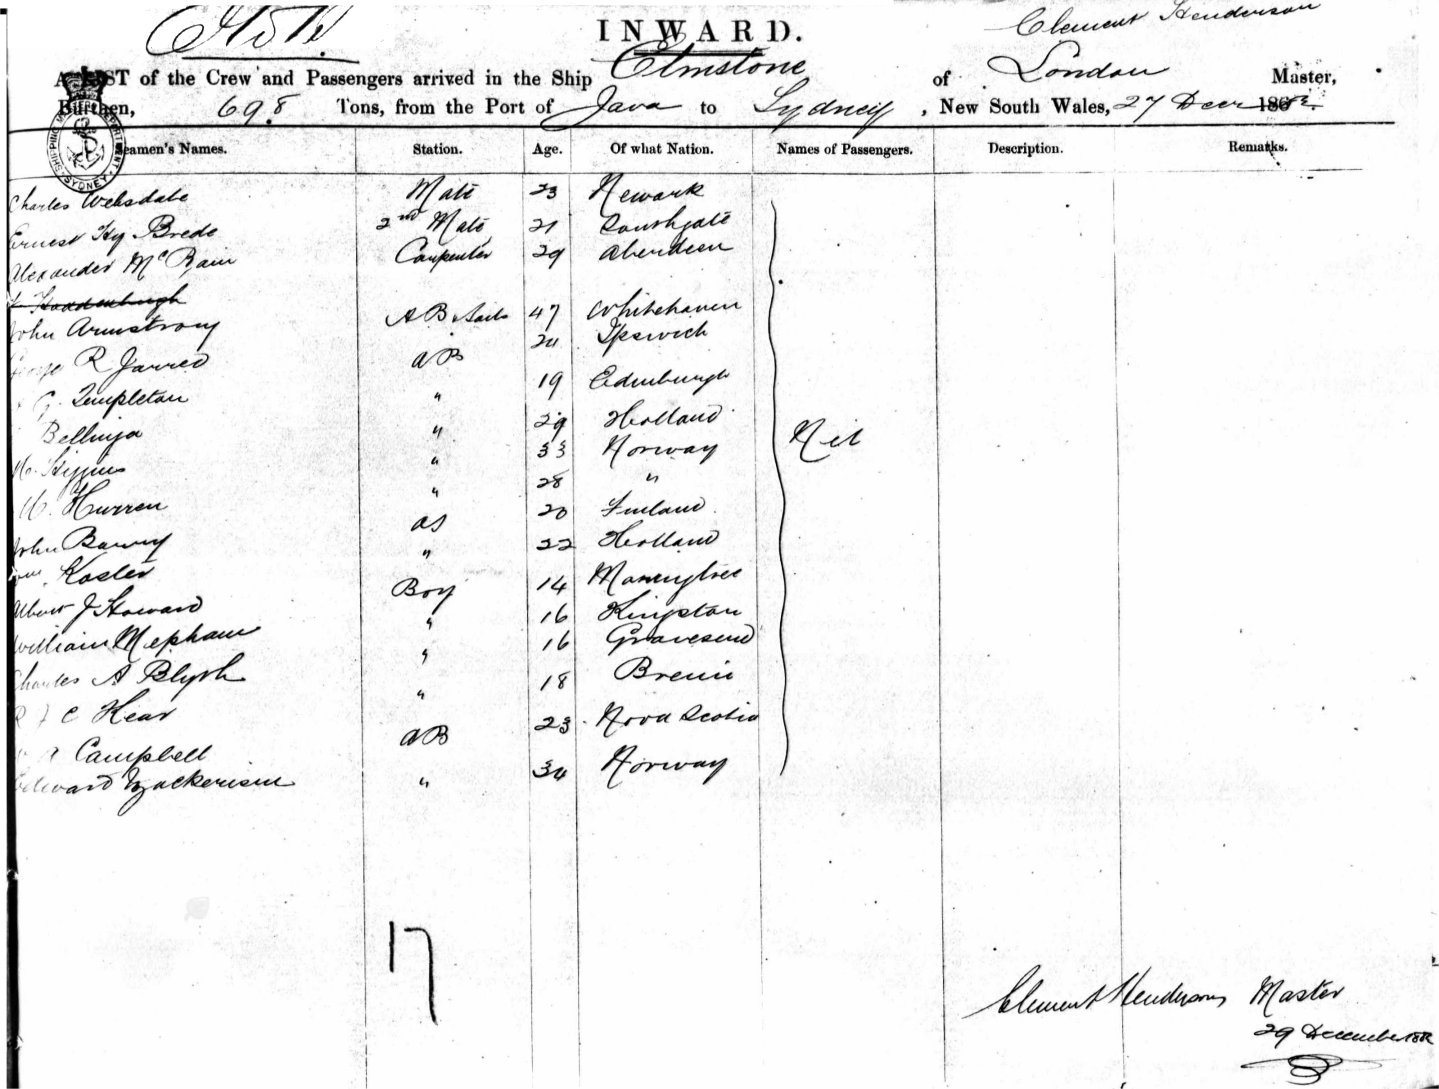 INWARD.
Clement Henderson
A LIST of the Crew and Passengers arrived in the Ship Elmstone of London Master,
Burthen, 698 Tons, from the Port of Java to Sydney, New South Wales, 27 Decr 186
Seamen's Names. Station. Age. Of what Nation. Names of Passengers. Description. Remarks.
SHIPPING DEPARTMENT SYDNEY
Charles Welsdale Mate 23 Newark
Ernest Hy Brede 2nd Mate 21 Southgate
Alexander McBain Carpenter 29 Aberdeen
John Armstrong AB Sails 47 Whitehaven
George R Jarred AB 24 Ipswich
G. Templeton " 19 Edinburgh
Bellinga " 29 Holland
Higgins " 33 Norway
Hurren " 28 "
John Barry OS 20 Finland
Koster " 22 Holland
Albert J Howard Boy 14 Manningtree
William Mepham " 16 Kingston
Charles A Blyth " 16 Gravesend
R J C Hear " 18
Campbell AB 23 Nova Scotia
Edward " 34 Norway
Nil
17
Clement Henderson Master
29 December 1882